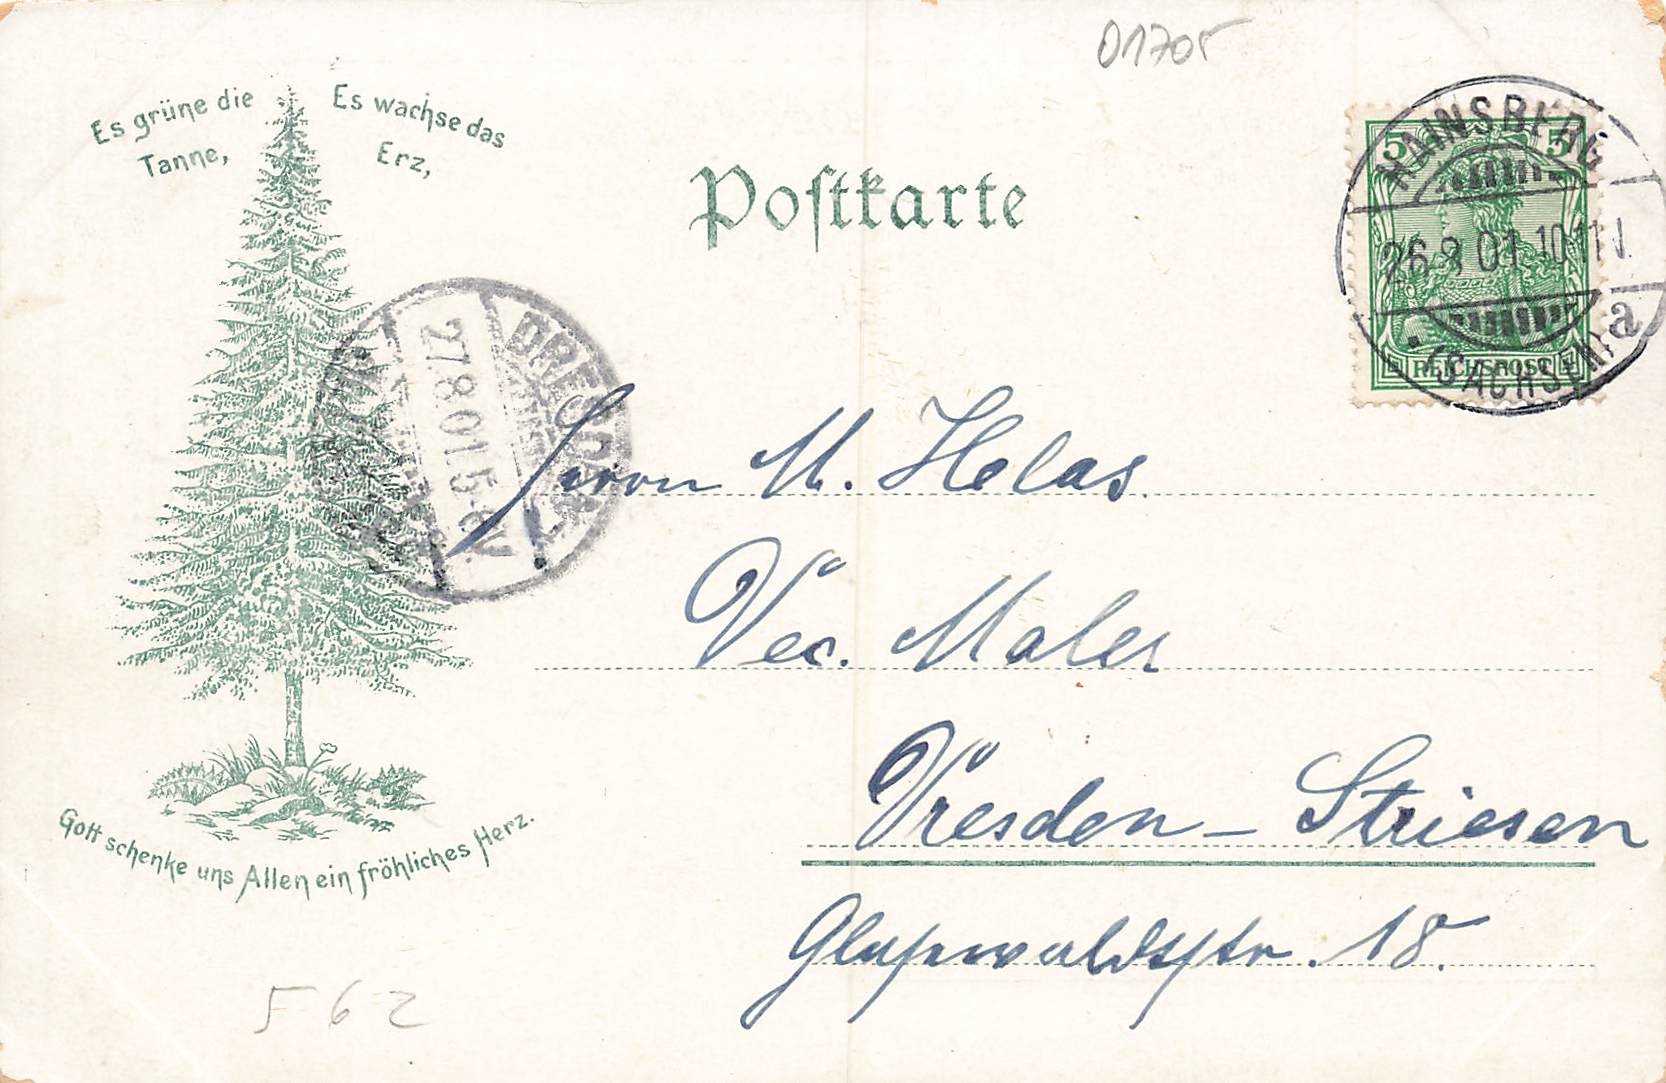 01705
Es grüne die
Tanne,
Es wachse das
Erz,
Postkarte
5 5
HAINSBERG
26.8.01.10-11V.
(SACHSEN) a
REICHSPOST
DRESDEN
27.8.01.5-6V.
Herrn M. Helas
Dec. Maler
Dresden – Striesen
Glasewaldtstr. 18.
Gott schenke uns Allen ein fröhliches Herz.
562